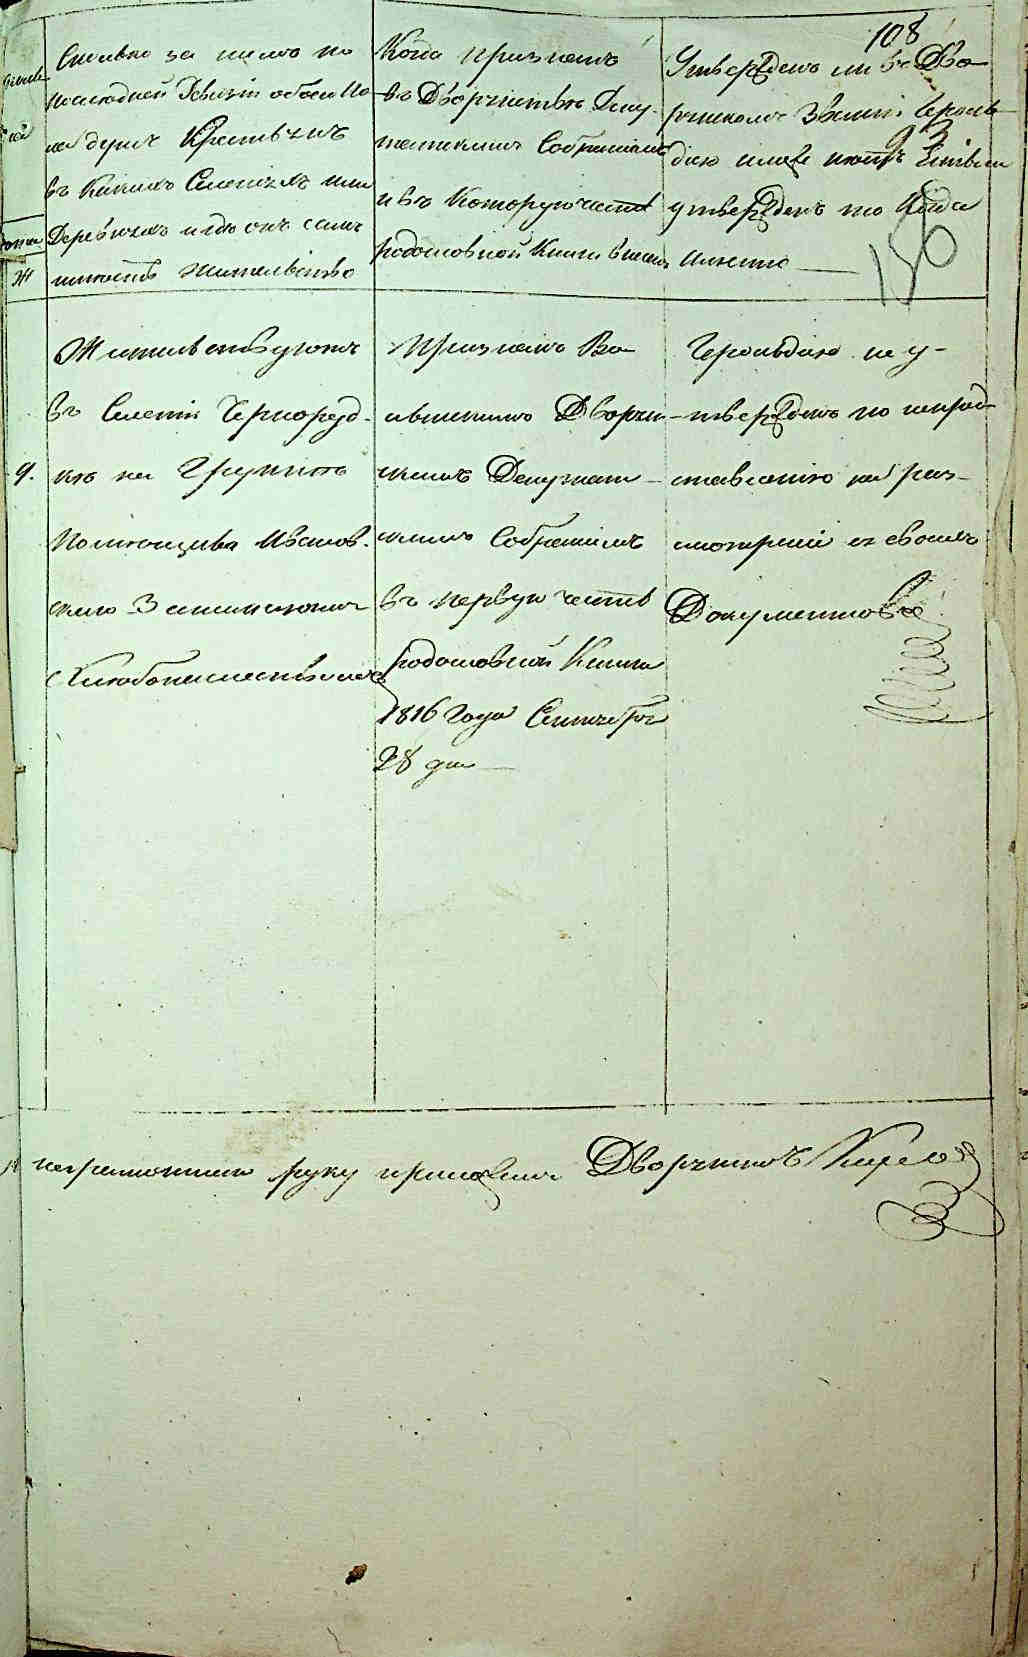 108
156
Сколько за нимъ по
последней Ревизіи обоего по
ла душъ Крестьянъ
въ какихъ Селеніяхъ или
Деревняхъ и где онъ самъ
имеетъ жительство
Когда признанъ
въ Дворянстве Депу-
татскимъ Собраніемъ
и въ которую часть
родословной Книги внесенъ
Утвержденъ ли въ Дво-
рянскомъ Званіи Героль-
діею или нетъ Если
утвержденъ то когда
имянно
Ж
9.
Жительствуютъ
въ Селеніи Черноруд-
ке на Грунте
Помещика Иванов-
скаго Занимаются
Хлебопашествомъ
Признанъ Во-
лынскимъ Дворян-
скимъ Депутат-
скимъ Собраніемъ
въ первую часть
родословной Книги
1816 Года Сентября
28 дня
Герольдіею не у-
твержденъ по непред-
ставленію на раз-
смотреніе ея своихъ
Документовъ
неграмотнаго руку приложилъ Дворянинъ